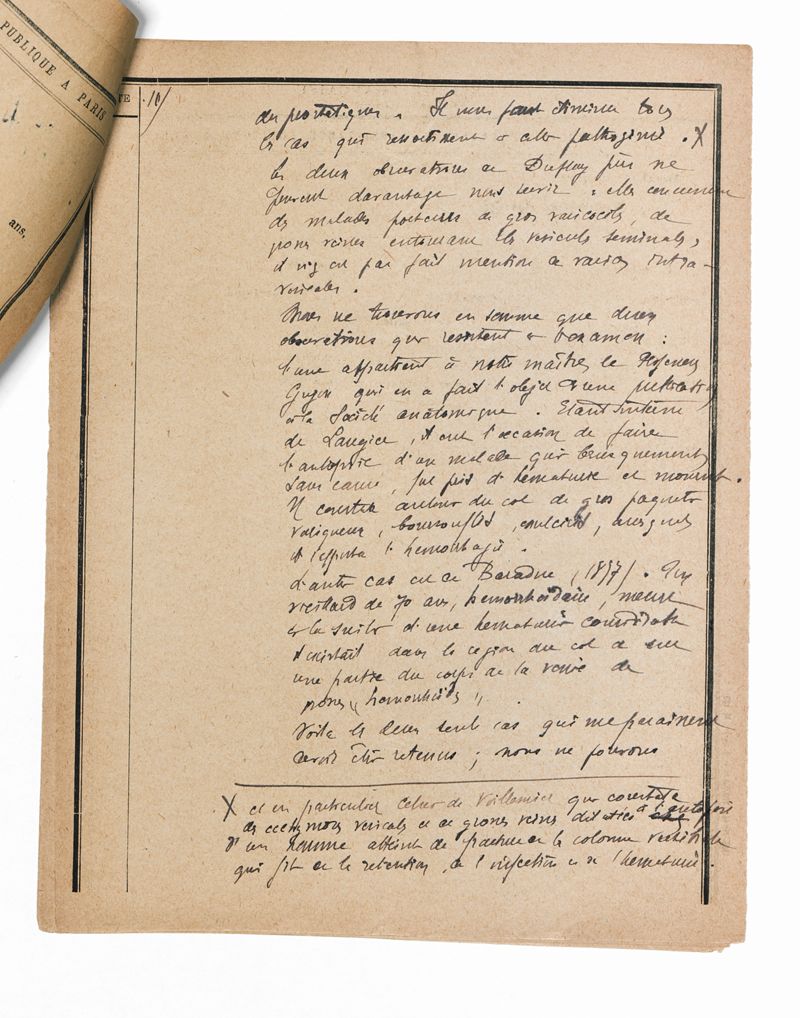 PUBLIQUE A PARIS
TE
ans,
10/
des prostatiques. Il nous faut éliminer tous
les cas qui ressortissent à cette pathogénie. X
les deux observations de Duplay fils ne
peuvent davantage nous servir : elles concernent
des malades porteurs de gros varicocèles, de
grosses veines entourant les vésicules séminales,
il n'y est pas fait mention de varices intra-
vésicales.
Nous ne trouverons en somme que deux
observations qui résistent à l'examen :
l'une appartient à notre maître le Professeur
Guyon qui en a fait l'objet d'une
à la Société anatomique. Etant interne
de Laugier, il eut l'occasion de faire
l'autopsie d'un malade qui brusquement
sans cause, fut pris d'hématurie et mourut.
Il constata autour du col de gros paquets
variqueux, boursouflés, auxquels
il l'hémorragie.
L'autre cas est de (1837). Un
vieillard de 70 ans, hémorrhoïdaire, meurt
à la suite d'une hématurie considérable
Il existait dans la région du col et sur
une partie du corps de la vessie de
grosses "hémorrhoïdes".
Voilà les deux seuls cas qui me paraissent
devoir être retenus ; nous ne pouvons
X et en particulier celui de Voillemier qui constata
des ecchymoses vésicales et de grosses veines dilatées à l'autopsie
d'un homme atteint de fracture de la colonne vertébrale
qui fit de la rétention, de l'infection et de l'hématurie.